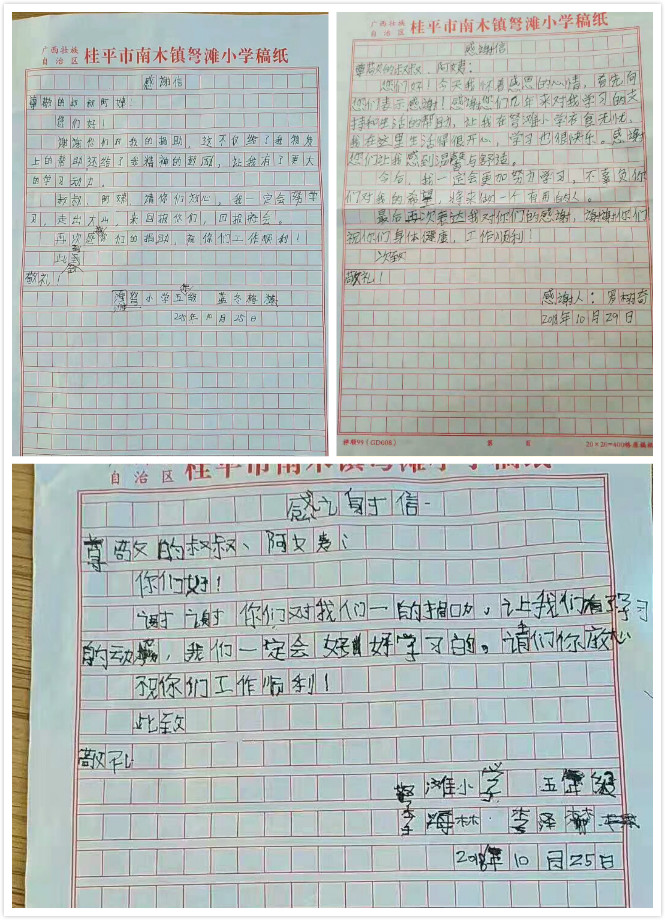 广西壮族
自治区 桂平市南木镇弩滩小学稿纸
感谢信
尊敬的叔叔阿姨:
您们好!
谢谢您们对我的捐助,这不仅给了我物质
上的帮助还给了我精神的救助,让我有了更大
的学习动力。
叔叔,阿姨,请你们放心,我一定会好好学
习,走出大山,来回报你们,回报社会。
再次感谢你们的捐助,祝你们工作顺利!
此致
敬礼!
小学五年级
2018年10月25日
广西壮族
自治区 桂平市南木镇弩滩小学稿纸
感谢信
尊敬的叔叔、阿姨:
您们好!今天我怀着感恩的心情,首先向
您们表示感谢!感谢您们几年来对我学习的支
持和生活的帮助,让我在弩滩小学衣食无忧,
我在这里生活得很开心,学习也很快乐。感谢
您们让我感到温馨与舒适。
今后,我一定会更加努力学习,不辜负你
们对我的希望,将来做一个有用的人。
最后再次表达我对你们的感谢,谢谢你们
祝你们身体健康,工作顺利!
次致
敬礼!
感谢人:罗
2018年10月29日
(GD608)
第 页
20×20=400
自治区 桂平市南木镇弩滩小学稿纸
感谢信
尊敬的叔叔、阿姨:
你们好!
谢谢你们对我们一的捐助,让我们有了学习
的动力,我们一定会好好学习的。请们你放心
祝你们工作顺利!
此致
敬礼
弩滩小学 五年级
李海林 李泽
2018年10月25日